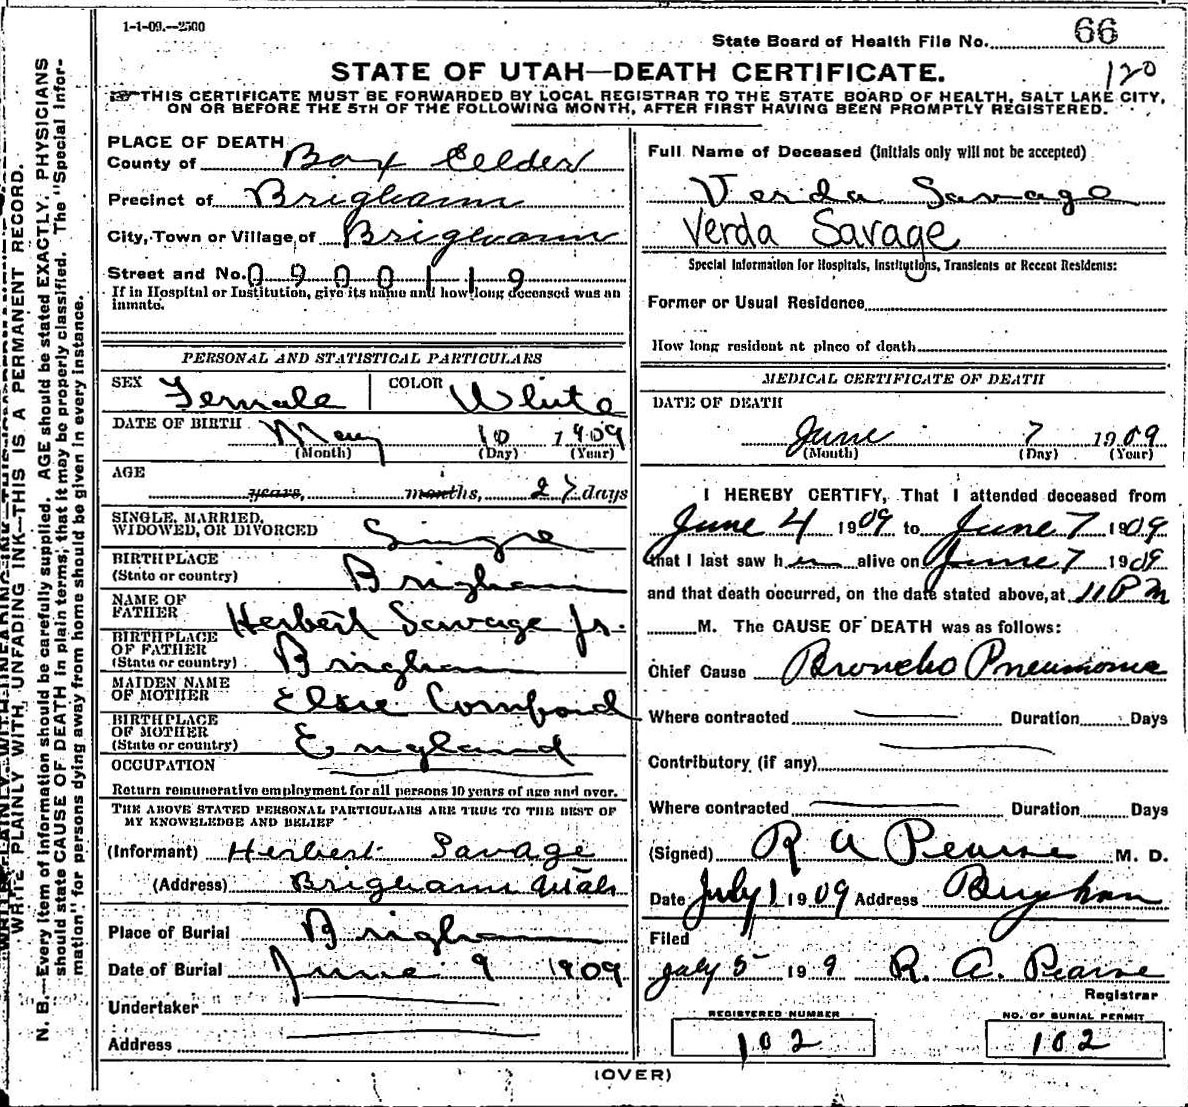 1-1-09.--2500
State Board of Health File No. 66
120
STATE OF UTAH—DEATH CERTIFICATE.
☞THIS CERTIFICATE MUST BE FORWARDED BY LOCAL REGISTRAR TO THE STATE BOARD OF HEALTH, SALT LAKE CITY,
ON OR BEFORE THE 5TH OF THE FOLLOWING MONTH, AFTER FIRST HAVING BEEN PROMPTLY REGISTERED.
PLACE OF DEATH
County of Box Elder
Precinct of Brigham
City, Town or Village of Brigham
Street and No. 0900119
If in Hospital or Institution, give its name and how long deceased was an
inmate.
PERSONAL AND STATISTICAL PARTICULARS
SEX Female COLOR White
DATE OF BIRTH May 10 1909
(Month) (Day) (Year)
AGE
years, months, 27 days
SINGLE, MARRIED,
WIDOWED, OR DIVORCED Single
BIRTHPLACE
(State or country) Brigham
NAME OF
FATHER Herbert Savage Jr.
BIRTHPLACE
OF FATHER
(State or country) Brigham
MAIDEN NAME
OF MOTHER Elsie Cornford
BIRTHPLACE
OF MOTHER
(State or country) England
OCCUPATION
Return remunerative employment for all persons 10 years of age and over.
THE ABOVE STATED PERSONAL PARTICULARS ARE TRUE TO THE BEST OF
MY KNOWLEDGE AND BELIEF
(Informant) Herbert Savage
(Address) Brigham Utah
Place of Burial Brigham
Date of Burial June 9 1909
Undertaker
Address
Full Name of Deceased (Initials only will not be accepted)
Verda Savage
Verda Savage
Special Information for Hospitals, Institutions, Transients or Recent Residents:
Former or Usual Residence
How long resident at place of death
MEDICAL CERTIFICATE OF DEATH
DATE OF DEATH
June 7 1909
(Month) (Day) (Year)
I HEREBY CERTIFY, That I attended deceased from
June 4 1909 to June 7 1909
that I last saw her alive on June 7 1909
and that death occurred, on the date stated above, at 11 P M
M. The CAUSE OF DEATH was as follows:
Chief Cause Broncho Pneumonia
Where contracted Duration Days
Contributory (if any)
Where contracted Duration Days
(Signed) R A Pearse M. D.
Date July 1 1909 Address Brigham
Filed
July 5 199 R. A. Pearse
Registrar
REGISTERED NUMBER
102
NO. OF BURIAL PERMIT
102
(OVER)
WRITE PLAINLY WITH UNFADING INK—THIS IS A PERMANENT RECORD.
N. B.—Every item of information should be carefully supplied. AGE should be stated EXACTLY. PHYSICIANS
should state CAUSE OF DEATH in plain terms, that it may be properly classified. The "Special Infor-
mation" for persons dying away from home should be given in every instance.